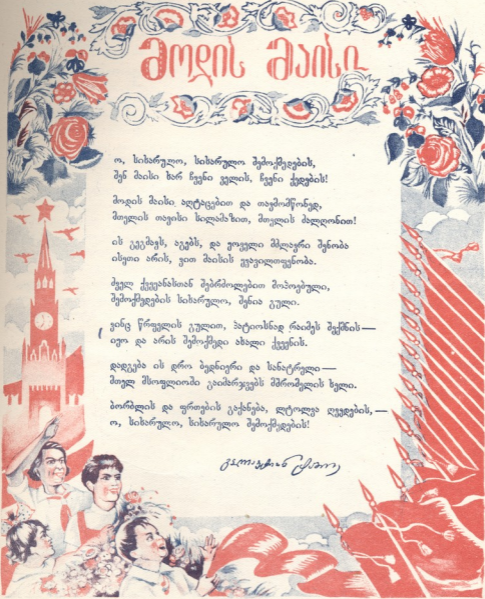 მოდის მაისი
ო, სიხარულო, სიხარულო შემოქმედების,
შენ მაისი ხარ ჩვენი ველის, ჩვენი ქედების!
მოდის მაისი აღტაცებით და თავმომწონედ,
მთელის თავისი სილამაზით, მთელის ძალღონით!
ის გეგმავს, აგებს, და ყოველი მძლავრი შენობა
ისეთი არის, ვით მაისის ყვავილოვნება.
ძველ ქვეყანასთან შებრძოლებით მოპოებული,
შემოქმედების სიხარულო, შენია გული.
ვინც წრფელის გულით, პატიოსნად რაიმეს შექმნის—
იყო და არის შემოქმედი ახალი ქვეყნის.
დადგება ის დრო ბედნიერი და სანატრელი—
მთელ მსოფლიოში გაიმარჯვებს მშრომელის ხელი.
ბორბლის და ფრთების გაქანება, ლტოლვა ღვედების,—
ო, სიხარულო, სიხარულო შემოქმედების!
გალაკტიონ ტაბიძე